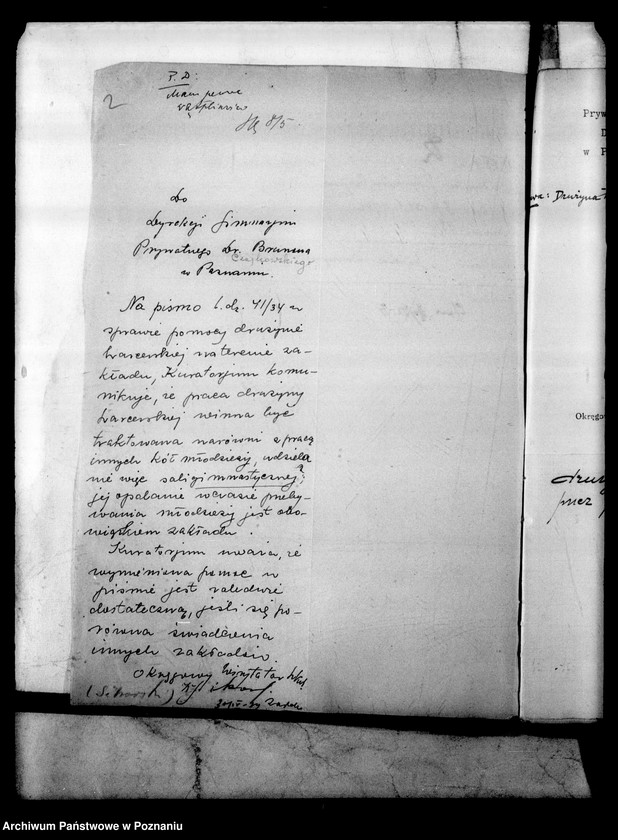 2
P. D:
Mam pewne
wątpliwości
8/5
Do
Dyrekcji Gimnazjum
Prywatnego Dr. Brunona
Czajkowskiego
w Poznaniu.
Na pismo l. dz. 41/34 w
sprawie pomocy drużynie
harcerskiej na terenie za-
kładu, Kuratorjum komu-
nikuje, że praca drużyny
harcerskiej winna być
traktowana narówni z pracą
innych kół młodzieży, udziela
nie więc sali gimnastycznej,?
jej opalanie wczasie przeby-
wania młodzieży jest obo-
wiązkiem zakładu.
Kuratorjum uważa, że
wymieniona pomoc w
piśmie jest zaledwie
dostateczną, jeśli się po-
równa świadczenia
innych zakładów.
Okręgowy Wizytator Szkół
Pryw
D
w P
wa: Drużyna
Okręgow
druż
przez
Archiwum Państwowe w Poznaniu